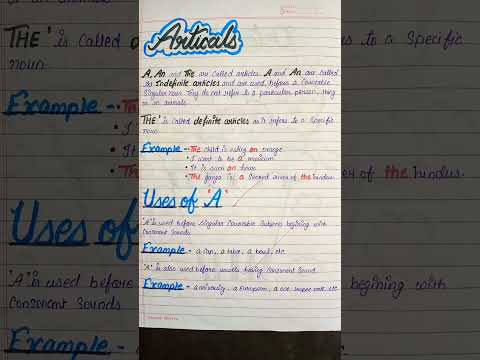 Articals
A, An and The are called articles. A and An are called
the Indefinite articles and are used before a Countable
Singular noun. They do not refer to a particular person, thing
or an animals
'THE' is called definite articles as it refers to a specific
noun
Example - • The child is eating an orange
• I want to be a musician
• It is such an hour
• The ganga is a Second river of the hindus.
Uses of 'A'
'A' is used before Singular Countable Subjects begining with
Consonent Sounds
Example - a cup, a table, a bowl, etc
'A' is also used before vowels having Consonent Sound
Example - a University, a European, a one rupee note etc
THE' is called d
s to a specific
noun
Example
• The
• I
• It
• The
er of the hindus.
Uses of
'A' is used before
begining with
Consonent Sounds
Example -
etc